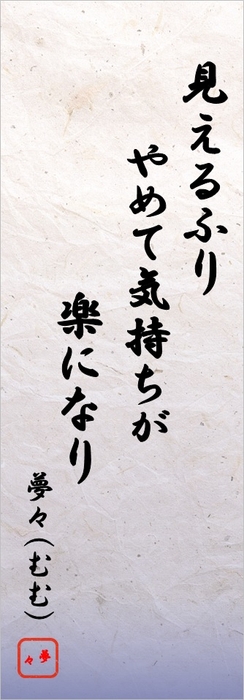 見えるふり
やめて気持ちが
楽になり
夢々(むむ)
夢々